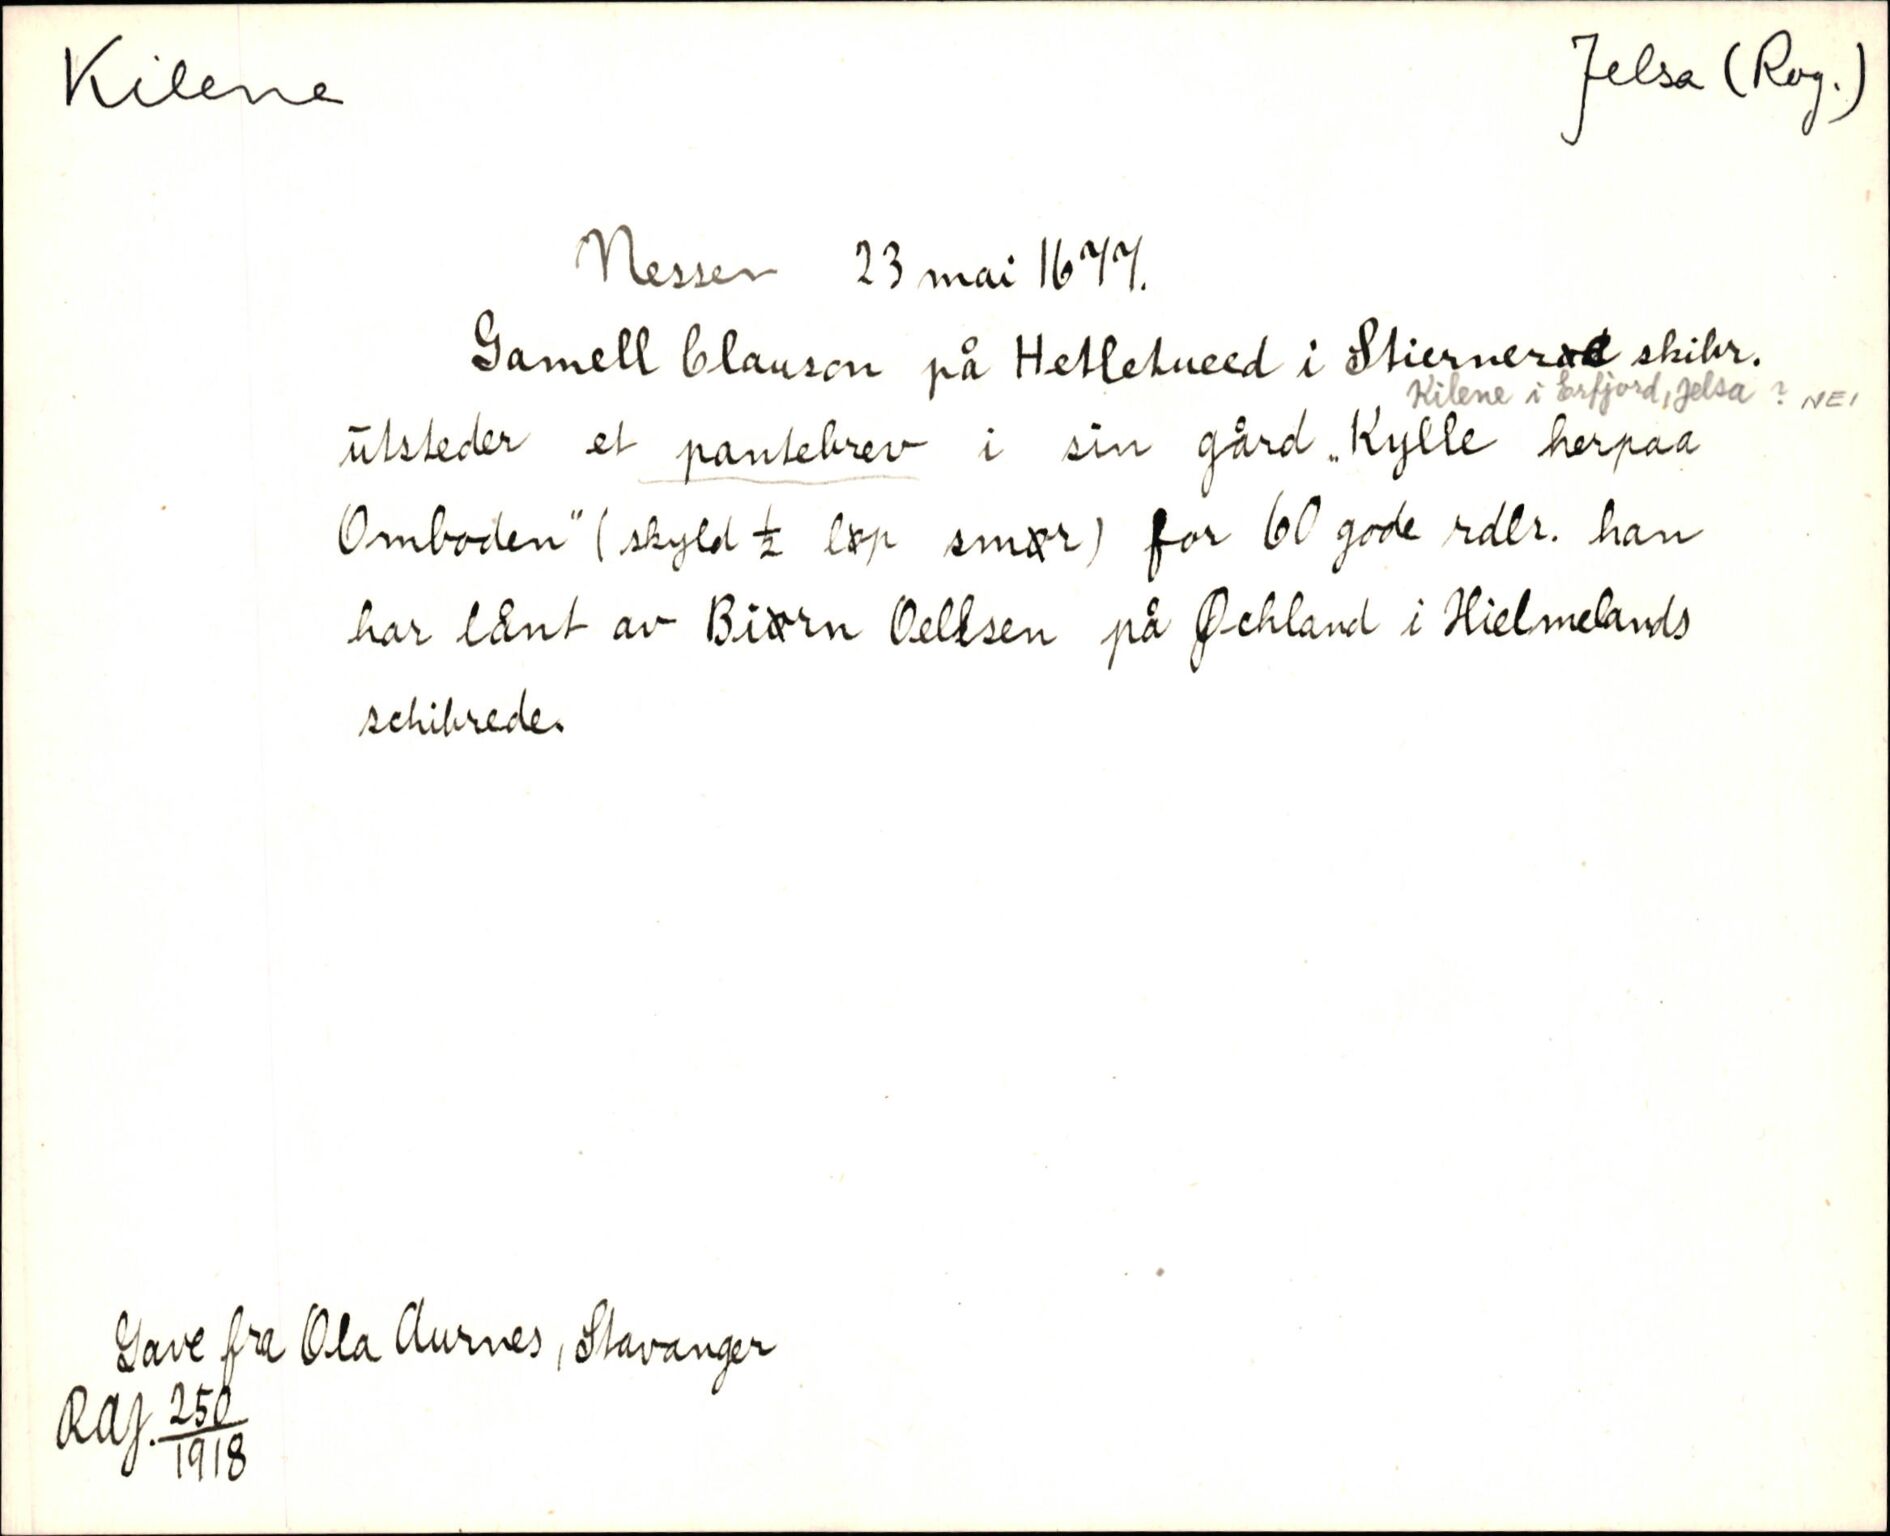 Kilene
Jelsa (Rog.)
Nesser 23 mai 1677.
Gamell Clauson på Hetletueed i Stiernerød skibr.
Kilene i Erfjord, Jelsa ? NEI
utsteder et pantebrev i sin gård „Kylle herpaa
Omboden" (skyld ½ løp smør) for 60 gode rdlr. han
har lånt av Biørn Oellsen på Øchland i Hielmelands
schibrede.
Gave fra Ola Aurnes, Stavanger
RAJ. 250/1918